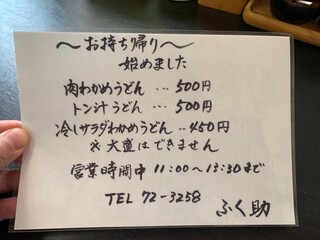 ～お持ち帰り～
始めました
肉わかめうどん … 500円
トン汁うどん … 500円
冷しサラダわかめうどん ‥ 450円
※大盛はできません
営業時間中 11:00～13:30まで
TEL 72-3258
ふく助